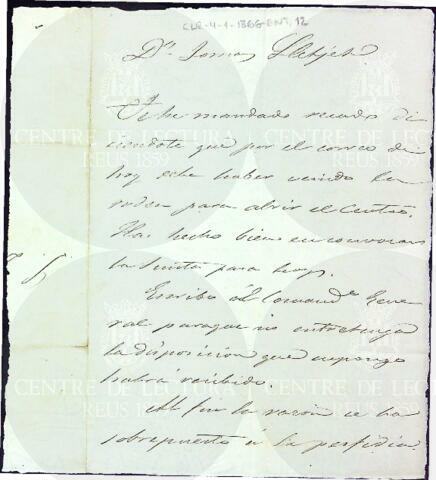 CLR-4-1-1866-ENT, 12
Dn. Tomas Lletjet
Te he mandado recado di
ciendote que por el correo de
hoy debe haber venido la
orden para abrir el Centro.
Has hecho bien en convocar
la Junta para hoy.
Escribo al Comande. Gene
ral paraque no entretenga
la disposicion que supongo
habrá recibido.
Al fin la razon se ha
sobrepuesto á la perfidia.
CENTRE DE LECTURA
REUS 1859
CENTRE DE LECTURA
REUS 1859
CENTRE DE LEC
REUS 1859